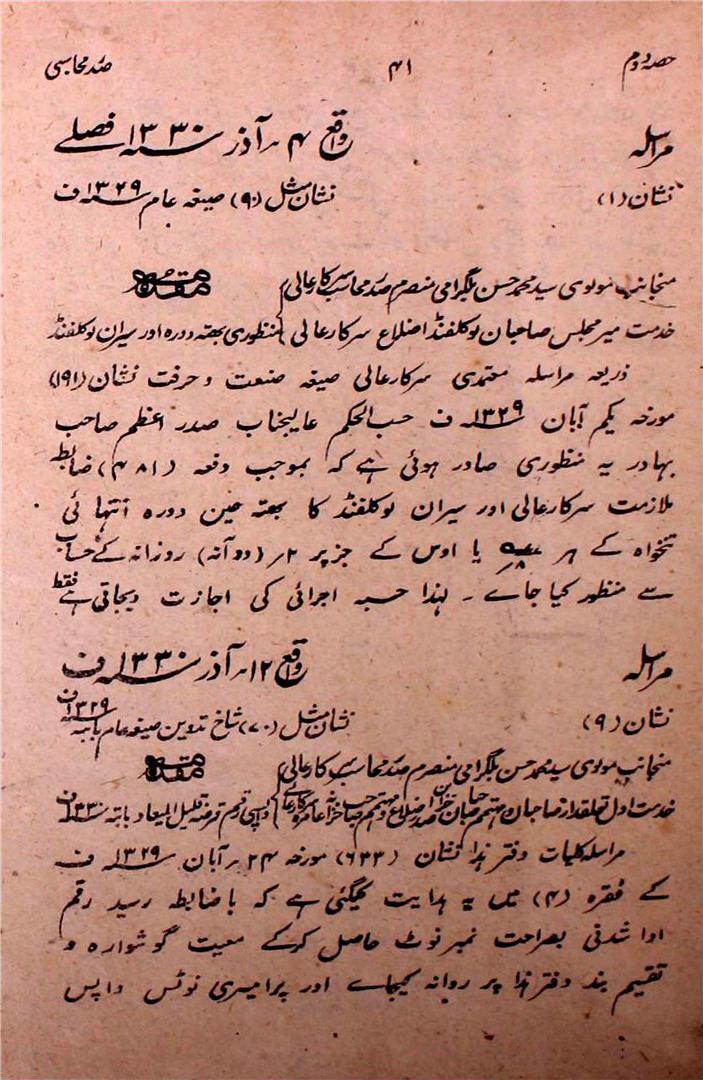 حصہ دوم ۴۱ صدر محاسبی
مراسلہ واقع ۴ آذر ۱۳۳۰ سنہ فصلے
نشان (۱) نشان مثل (۹۰) صیغہ عام ۱۳۲۹ سنہ ف
منجانب مولوی سید محمد حسن بلگرامی منصرم صدر محاسب سرکار عالی مقدمہ
خدمت میر مجلس صاحبان لوکلفنڈ اضلاع سرکار عالی منظوری بھتہ دورہ اور سیران لوکلفنڈ
ذریعہ مراسلہ معتمدی سرکار عالی صیغہ صنعت و حرفت نشان (۱۹۱)
مورخہ یکم آبان ۱۳۲۹ سنہ ف حسب الحکم عالیجناب صدر اعظم صاحب
بہادر یہ منظوری صادر ہوئی ہے کہ بموجب دفعہ (۴۸۱) ضابطہ
ملازمت سرکار عالی اور سیران لوکلفنڈ کا بھتہ حین دورہ انتہائی
تنخواہ کے ہر یا اوس کے جز پر ۲ر (دو آنہ) روزانہ کے حساب
سے منظور کیا جاے ۔ لہذا حسبہ اجرائی کی اجازت دیجاتی ہے فقط
مراسلہ واقع ۱۲ آذر ۱۳۳۰ سنہ ف
نشان (۹) نشان مثل (۷۰) شاخ تدوین صیغہ عام بابتہ ۱۳۲۹ سنہ ف
منجانب مولوی سید محمد حسن بلگرامی منصرم صدر محاسب سرکار عالی مقدمہ
خدمت اول تعلقدار صاحبان و مہتمم صاحبان خزانہ صدر اضلاع و مہتمم صاحب خزانہ عامرہ سرکار عالی واپسی رقم قرضہ قلیل المیعاد بابتہ ۱۳۳۰ ف
مراسلہ کلیات دفتر ہذا نشان (۶۳۳) مورخہ ۲۴ آبان ۱۳۲۹ سنہ ف
کے فقرہ (۴) میں یہ ہدایت کیگئی ہے کہ باضابطہ رسید رقم
ادا شدنی بصراحت نمبر نوٹ حاصل کرکے معیت گوشوارہ و
تقسیم بند دفتر ہذا پر روانہ کیجاے اور پرامیسری نوٹس واپس